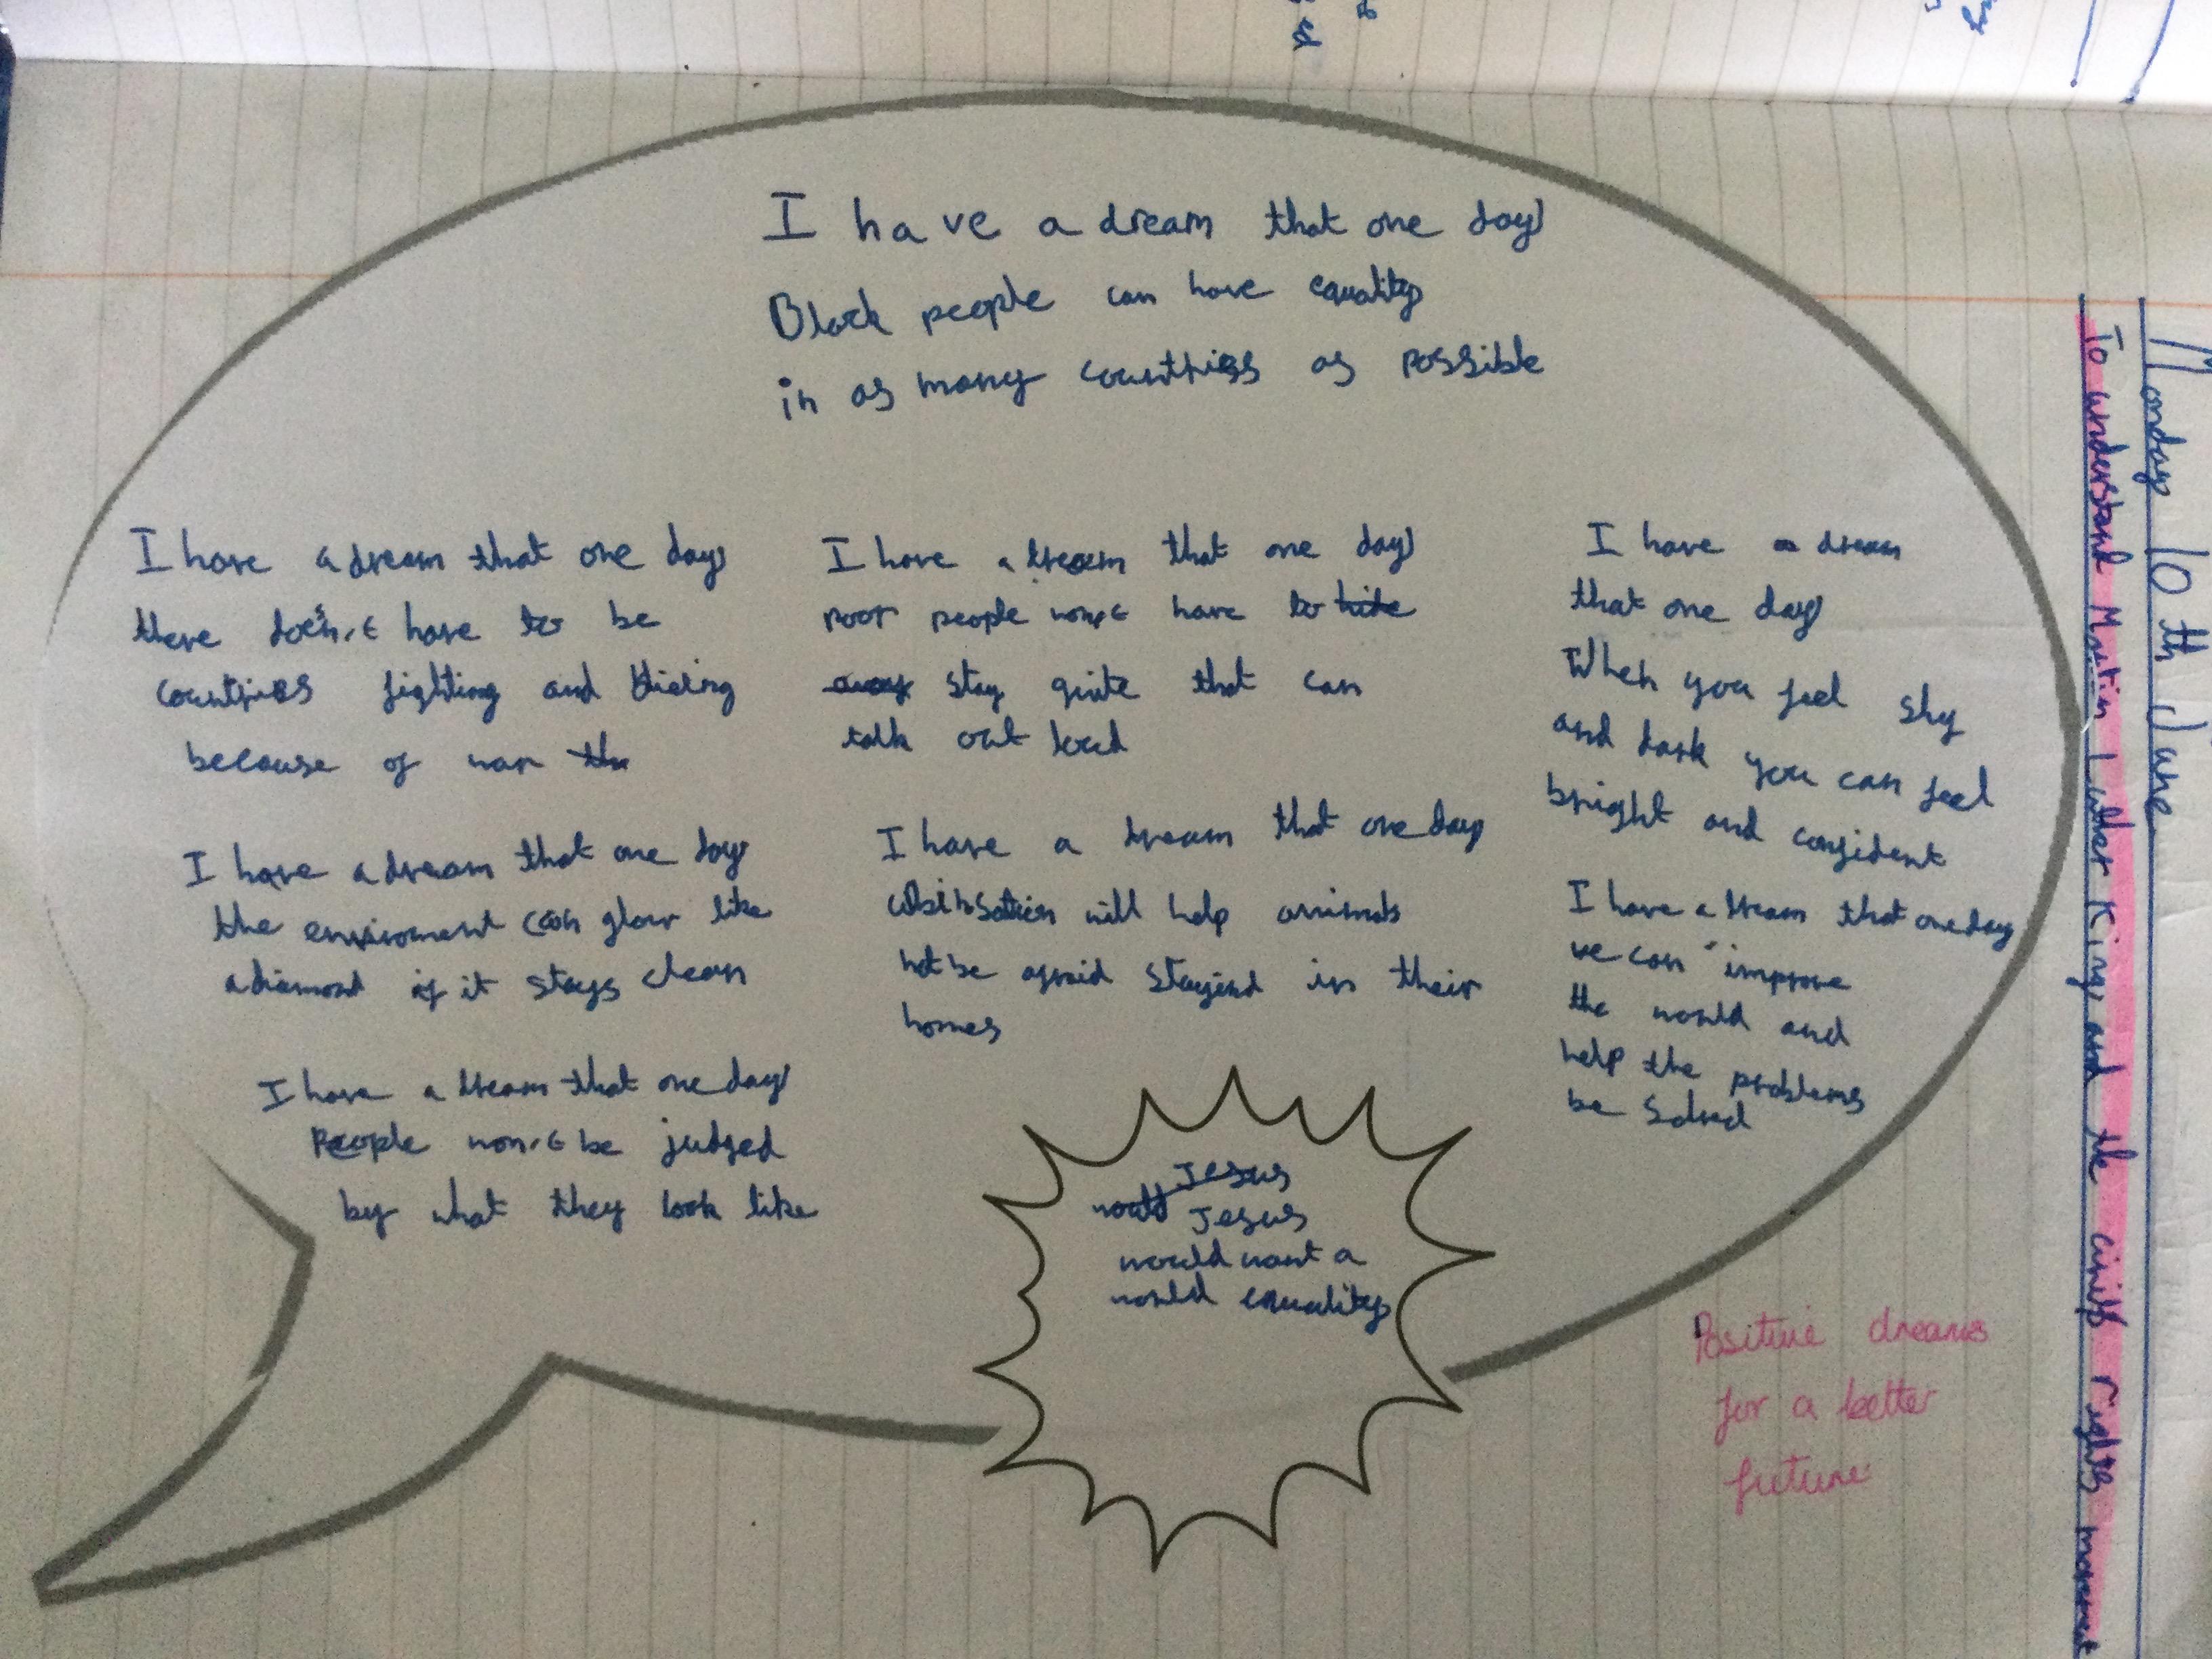 Monday 10th June
To understand Martin Luther King, and the civil rights movement
I have a dream that one day
Black people can have equality
in as many countries as possible
I have a dream that one day
there doesn't have to be
countries fighting and
because of war
I have a dream that one day
the enviroment can glow like
a diamond if it stays clean
I have a dream that one day
People won't be judged
by what they look like
I have a dream that one day
poor people won't have to hide
away stay quite that can
talk out loud
I have a dream that one day
will help animals
not be afraid in their
homes
I have a dream
that one day
When you feel shy
and dark you can feel
bright and confident
I have a dream that one day
we can improve
the world and
help the problems
be solved
Jesus
would Jesus
would want a
world equality
Positive dreams
for a better
future